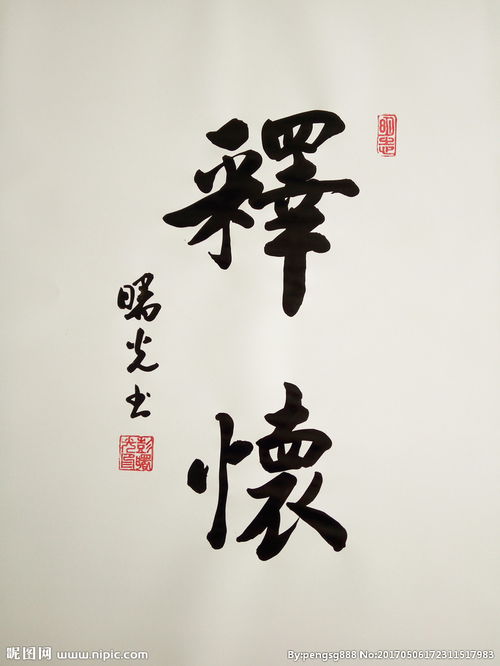 釋懷
曙光书
明志
彭曙光印
昵图网 www.nipic.com
By:pengsg888 No:20170506172311517983